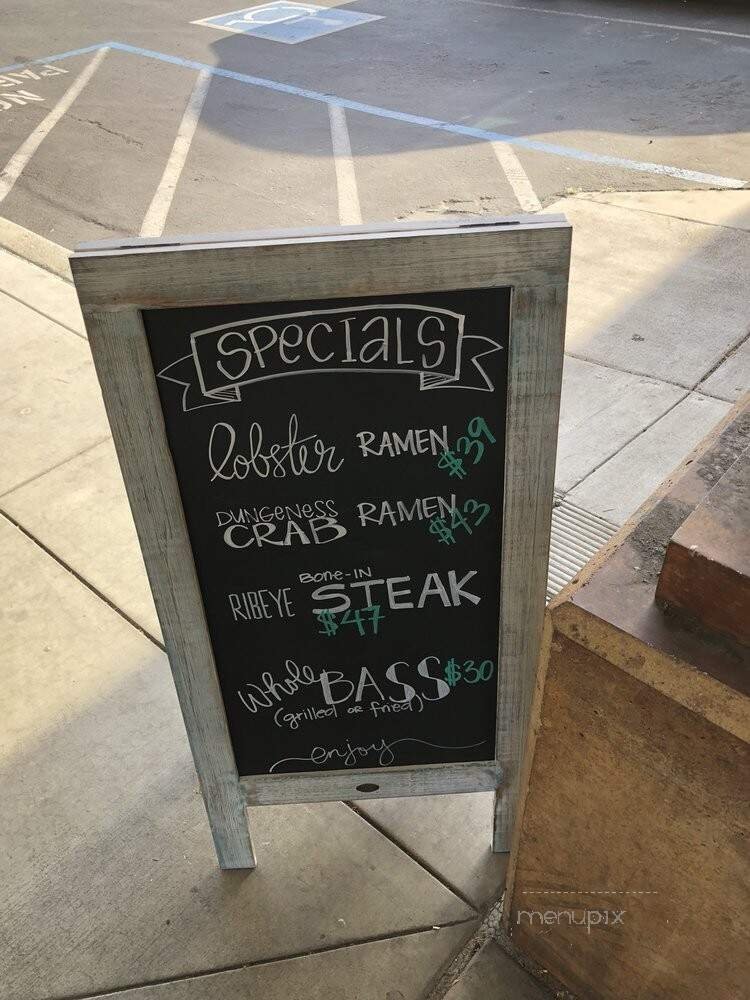 NO
PAR
SPecIaLS
lobster RAMEN $39
DUNGeNeSS
CRAB RAMEN $43
BONe-IN
RIBEYE STEAK
$47
whole BASS $30
(grilled or fried)
enjoy
menupix